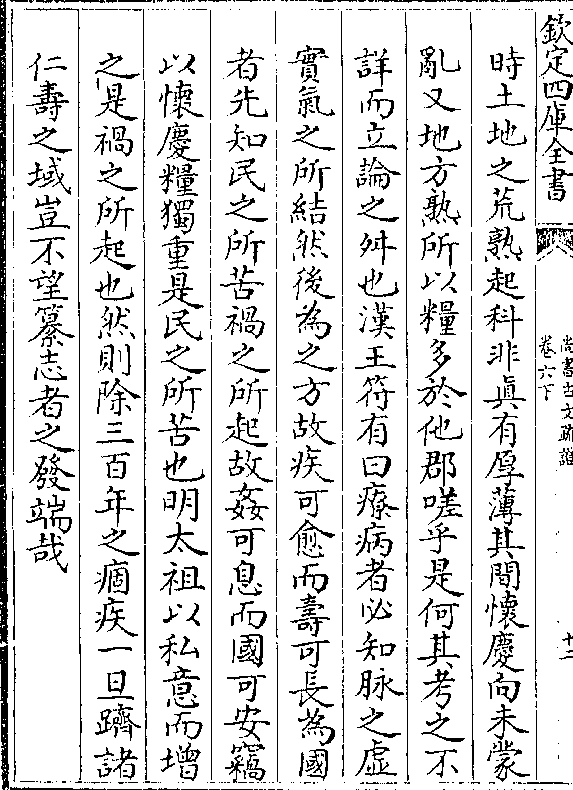 欽定四庫全書
尚書古文疏證
卷六下
十二
時土地之荒熟起科非真有厚薄其間懷慶向未蒙
亂又地方熟所以糧多於他郡嗟乎是何其考之不
詳而立論之舛也漢王符有曰療病者必知脉之虛
實氣之所結然後為之方故疾可愈而壽可長為國
者先知民之所苦禍之所起故姦可息而國可安竊
以懷慶糧獨重是民之所苦也明太祖以私意而增
之是禍之所起也然則除三百年之痼疾一旦躋諸
仁壽之域豈不望纂志者之發端哉